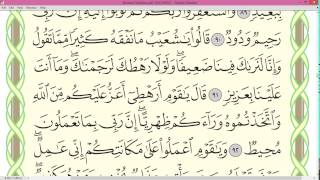 بِبَعِيدٍ ٨٩ وَاسْتَغْفِرُوا رَبَّكُمْ ثُمَّ تُوبُوا إِلَيْهِ إِنَّ رَبِّي
رَحِيمٌ وَدُودٌ ٩٠ قَالُوا يَا شُعَيْبُ مَا نَفْقَهُ كَثِيرًا مِمَّا تَقُولُ
وَإِنَّا لَنَرَاكَ فِينَا ضَعِيفًا وَلَوْلَا رَهْطُكَ لَرَجَمْنَاكَ وَمَا أَنْتَ
عَلَيْنَا بِعَزِيزٍ ٩١ قَالَ يَا قَوْمِ أَرَهْطِي أَعَزُّ عَلَيْكُمْ مِنَ اللَّهِ
وَاتَّخَذْتُمُوهُ وَرَاءَكُمْ ظِهْرِيًّا إِنَّ رَبِّي بِمَا تَعْمَلُونَ
مُحِيطٌ ٩٢ وَيَا قَوْمِ اعْمَلُوا عَلَى مَكَانَتِكُمْ إِنِّي عَامِلٌ